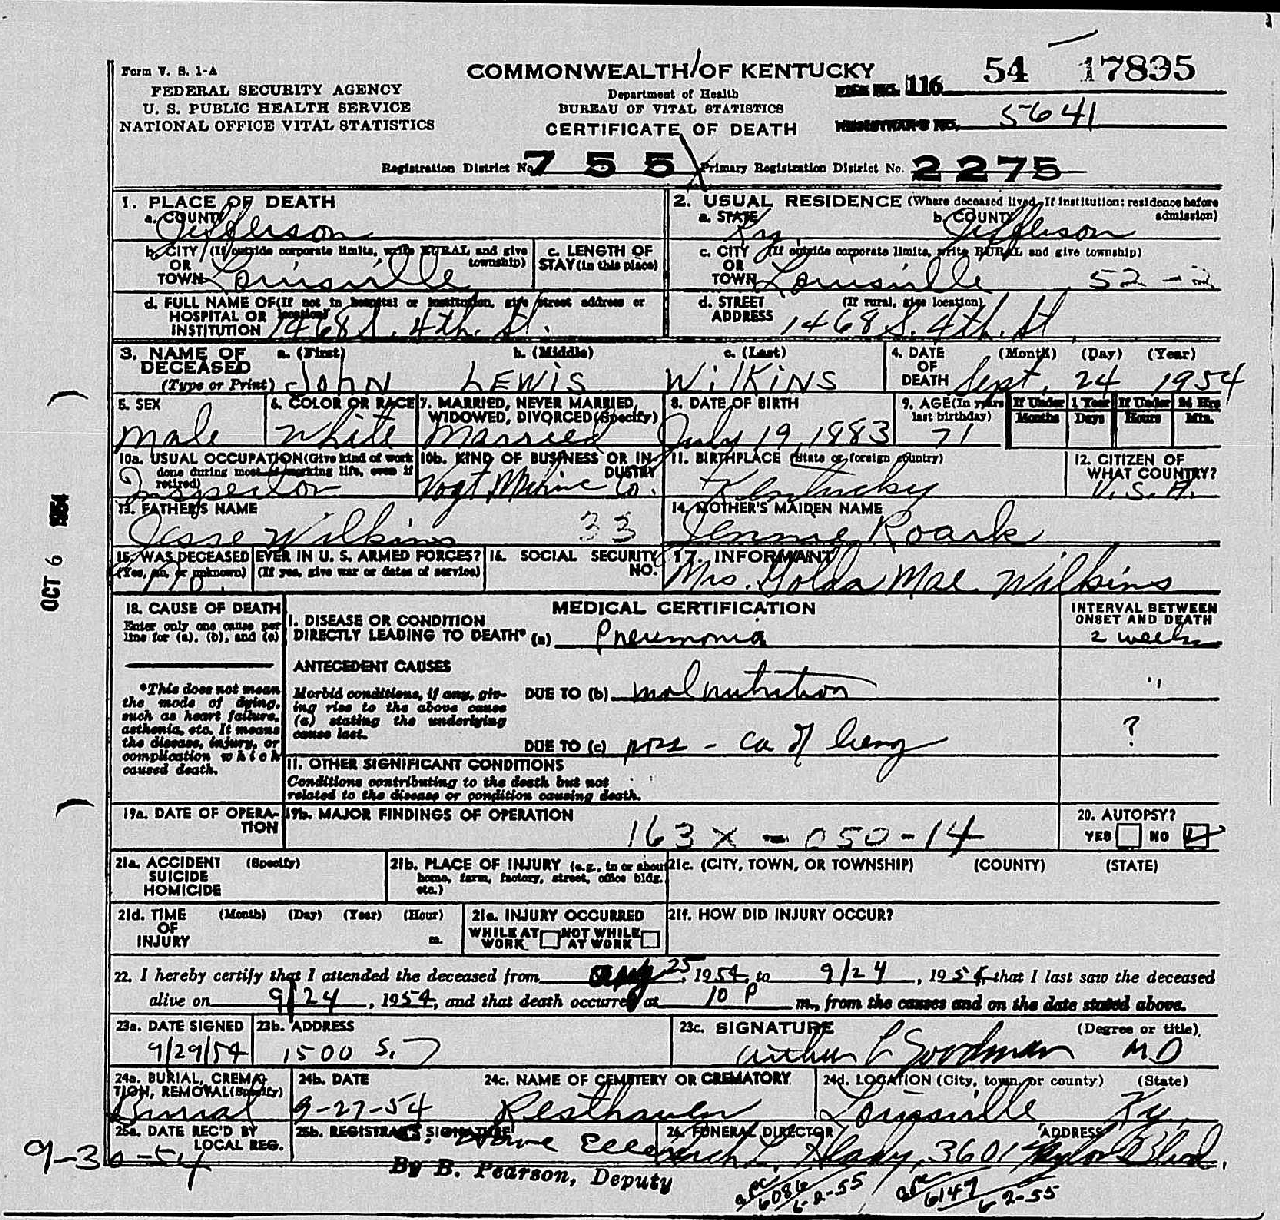 Form V. S. 1-A
FEDERAL SECURITY AGENCY
U. S. PUBLIC HEALTH SERVICE
NATIONAL OFFICE VITAL STATISTICS
COMMONWEALTH OF KENTUCKY
Department of Health
BUREAU OF VITAL STATISTICS
CERTIFICATE OF DEATH
FILE NO. 116 54 17835
REGISTRAR'S NO. 5641
Registration District No. 755 Primary Registration District No. 2275
1. PLACE OF DEATH
a. COUNTY Jefferson
b. CITY (If outside corporate limits, write RURAL and give township) OR TOWN Louisville
c. LENGTH OF STAY (in this place)
d. FULL NAME OF (If not in hospital or institution, give street address or location) HOSPITAL OR INSTITUTION 1468 S. 4th. St.
2. USUAL RESIDENCE (Where deceased lived. If institution: residence before admission)
a. STATE Ky b. COUNTY Jefferson
c. CITY (If outside corporate limits, write RURAL and give township) OR TOWN Louisville 52 - 2
d. STREET ADDRESS (If rural, give location) 1468 S. 4th. St
3. NAME OF DECEASED (Type or Print) a. (First) JOHN b. (Middle) LEWIS c. (Last) WILKINS
4. DATE OF DEATH (Month) (Day) (Year) Sept. 24 1954
5. SEX Male
6. COLOR OR RACE White
7. MARRIED, NEVER MARRIED, WIDOWED, DIVORCED (Specify) Married
8. DATE OF BIRTH July 19, 1883
9. AGE (In years last birthday) 71 If Under 1 Year Months Days If Under 24 Hrs Hours Min.
10a. USUAL OCCUPATION (Give kind of work done during most of working life, even if retired) Inspector
10b. KIND OF BUSINESS OR INDUSTRY Vogt Co.
11. BIRTHPLACE (State or foreign country) Kentucky
12. CITIZEN OF WHAT COUNTRY? U.S.A.
13. FATHER'S NAME Jesse Wilkins 33
14. MOTHER'S MAIDEN NAME Jennie Roark
15. WAS DECEASED EVER IN U. S. ARMED FORCES? (Yes, no, or unknown) No. (If yes, give war or dates of service)
16. SOCIAL SECURITY NO.
17. INFORMANT Mrs. Golda Mae Wilkins
18. CAUSE OF DEATH
Enter only one cause per line for (a), (b), and (c)
*This does not mean the mode of dying, such as heart failure, asthenia, etc. It means the disease, injury, or complication which caused death.
MEDICAL CERTIFICATION
INTERVAL BETWEEN ONSET AND DEATH
I. DISEASE OR CONDITION DIRECTLY LEADING TO DEATH* (a) Pneumonia 2 weeks
ANTECEDENT CAUSES
Morbid conditions, if any, giving rise to the above cause (a) stating the underlying cause last.
DUE TO (b) malnutrition "
DUE TO (c) poss - ca of lung ?
II. OTHER SIGNIFICANT CONDITIONS
Conditions contributing to the death but not related to the disease or condition causing death.
19a. DATE OF OPERATION
19b. MAJOR FINDINGS OF OPERATION
163X - 050-14
20. AUTOPSY? YES NO
21a. ACCIDENT SUICIDE HOMICIDE (Specify)
21b. PLACE OF INJURY (e.g., in or about home, farm, factory, street, office bldg. etc.)
21c. (CITY, TOWN, OR TOWNSHIP) (COUNTY) (STATE)
21d. TIME OF INJURY (Month) (Day) (Year) (Hour) m.
21e. INJURY OCCURRED WHILE AT WORK NOT WHILE AT WORK
21f. HOW DID INJURY OCCUR?
22. I hereby certify that I attended the deceased from Aug 25, 1954, to 9/24, 1954, that I last saw the deceased
alive on 9/24, 1954, and that death occurred at 10 P m., from the causes and on the date stated above.
23a. DATE SIGNED 9/29/54
23b. ADDRESS 1500 S. 7
23c. SIGNATURE (Degree or title) Arthur L Goodman MD
24a. BURIAL, CREMATION, REMOVAL (Specify) Burial
24b. DATE 9-27-54
24c. NAME OF CEMETERY OR CREMATORY Resthaven
24d. LOCATION (City, town, or county) (State) Louisville Ky.
25a. DATE REC'D BY LOCAL REG. 9-30-54
25b. REGISTRAR'S SIGNATURE
By B. Pearson, Deputy
26. FUNERAL DIRECTOR ADDRESS 3601 Taylor Blvd.
6086 6-2-55
6147 6-2-55
OCT 6 1954